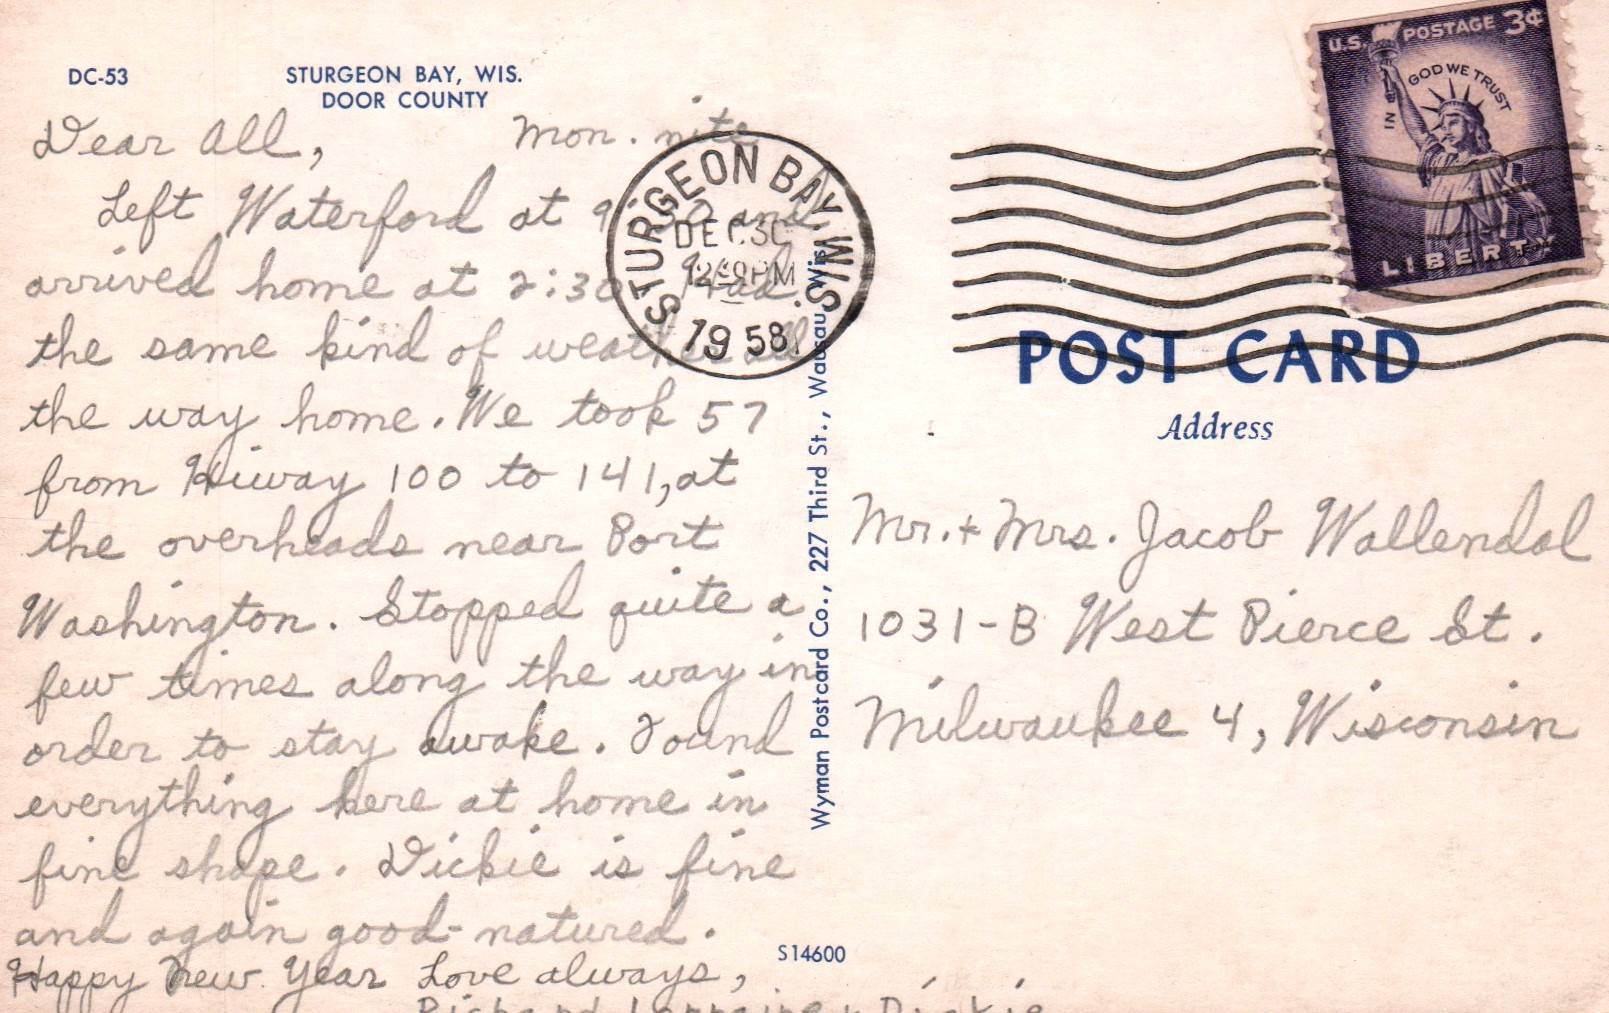 DC-53
STURGEON BAY, WIS.
DOOR COUNTY
Dear All, Mon. nite
Left Waterford at and
arrived home at 2:30. Had
the same kind of weather all
the way home. We took 57
from Hiway 100 to 141, at
the overheads near Port
Washington. Stopped quite a
few times along the way in
order to stay awake. Found
everything here at home in
fine shape. Dickie is fine
and again good-natured.
Happy New Year Love always,
Richard Lorraine & Dickie
STURGEON BAY, WIS.
DEC 30
PM
1958
U.S. POSTAGE 3¢
IN GOD WE TRUST
LIBERTY
POST CARD
Address
Mr. + Mrs. Jacob Wallendal
1031-B West Pierce St.
Milwaukee 4, Wisconsin
Wyman Postcard Co., 227 Third St., Wausau, Wis.
S14600